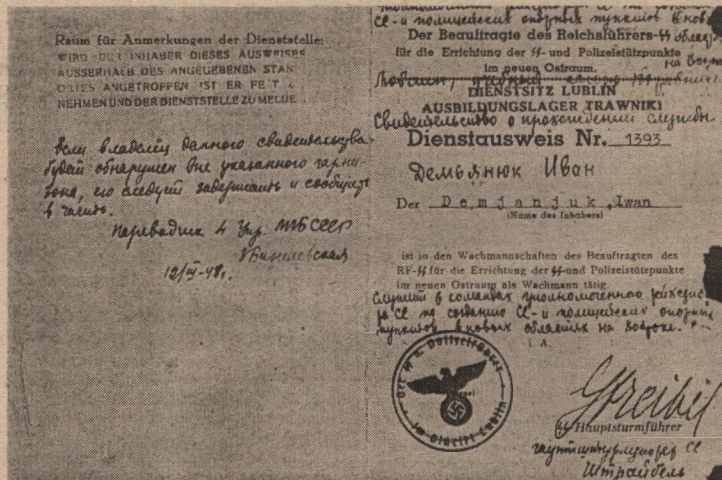 Raum für Anmerkungen der Dienststelle:
WIRD DER INHABER DIESES AUSWEISES
AUSSERHALB DES ANGEGEBENEN STAN
ORTES ANGETROFFEN IST ER
NEHMEN UND DER DIENSTSTELLE ZU MELDE
Если владелец данного свидетельства
будет обнаружен вне указанного гарни-
зона, его следует задержать и сообщить
в часть.
Переводчик 4 Упр. МГБ СССР
12/III-48г.
СС- и полицейских опорных пунктов в нов
Der Beauftragte des Reichsführers-SS
област
für die Errichtung der SS- und Polizeistützpunkte
im neuen Ostraum.
на Вост
Люблин, учебный лагерь
DIENSTSITZ LUBLIN
AUSBILDUNGSLAGER TRAWNIKI
Свидетельство о прохождении службы
Dienstausweis Nr. 1393
Демьянюк Иван
Der Demjanjuk, Iwan
(Name des Inhabers)
ist in den Wachmannschaften des Beauftragten des
RF-SS für die Errichtung der SS- und Polizeistützpunkte
im neuen Ostraum als Wachmann tätig.
Служит в командах уполномоченного рейхсфю
ра СС по созданию СС- и полицейских опорных
пунктов в новых областях на востоке.
I. A.
Der SS u. Polizeiführer
im Distrikt Lublin
Streibel
SS Hauptsturmführer
гауптштурмфюрер СС
Штрайбель